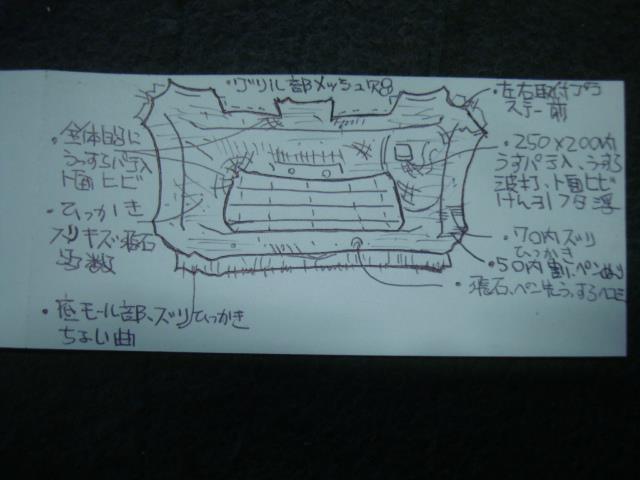 ・グリル部メッシュ穴8
・左右取付プラ
ステー前
・全体的に
うっすらパテ入
ト面ヒビ
・250×200内
うすパテ入、うっすら
波打、ト面ヒビ
・ひっかき
スリキズ、飛石
多数
・70内ズリ
ひっかき
・50内割
・飛石、ペン先うっすら
・底モール部、ズリひっかき
ちょい曲